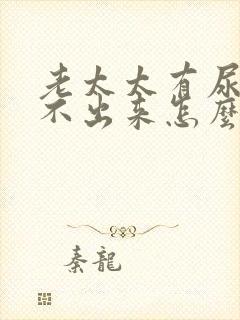 老太太有尿
不出来怎麼
秦龍